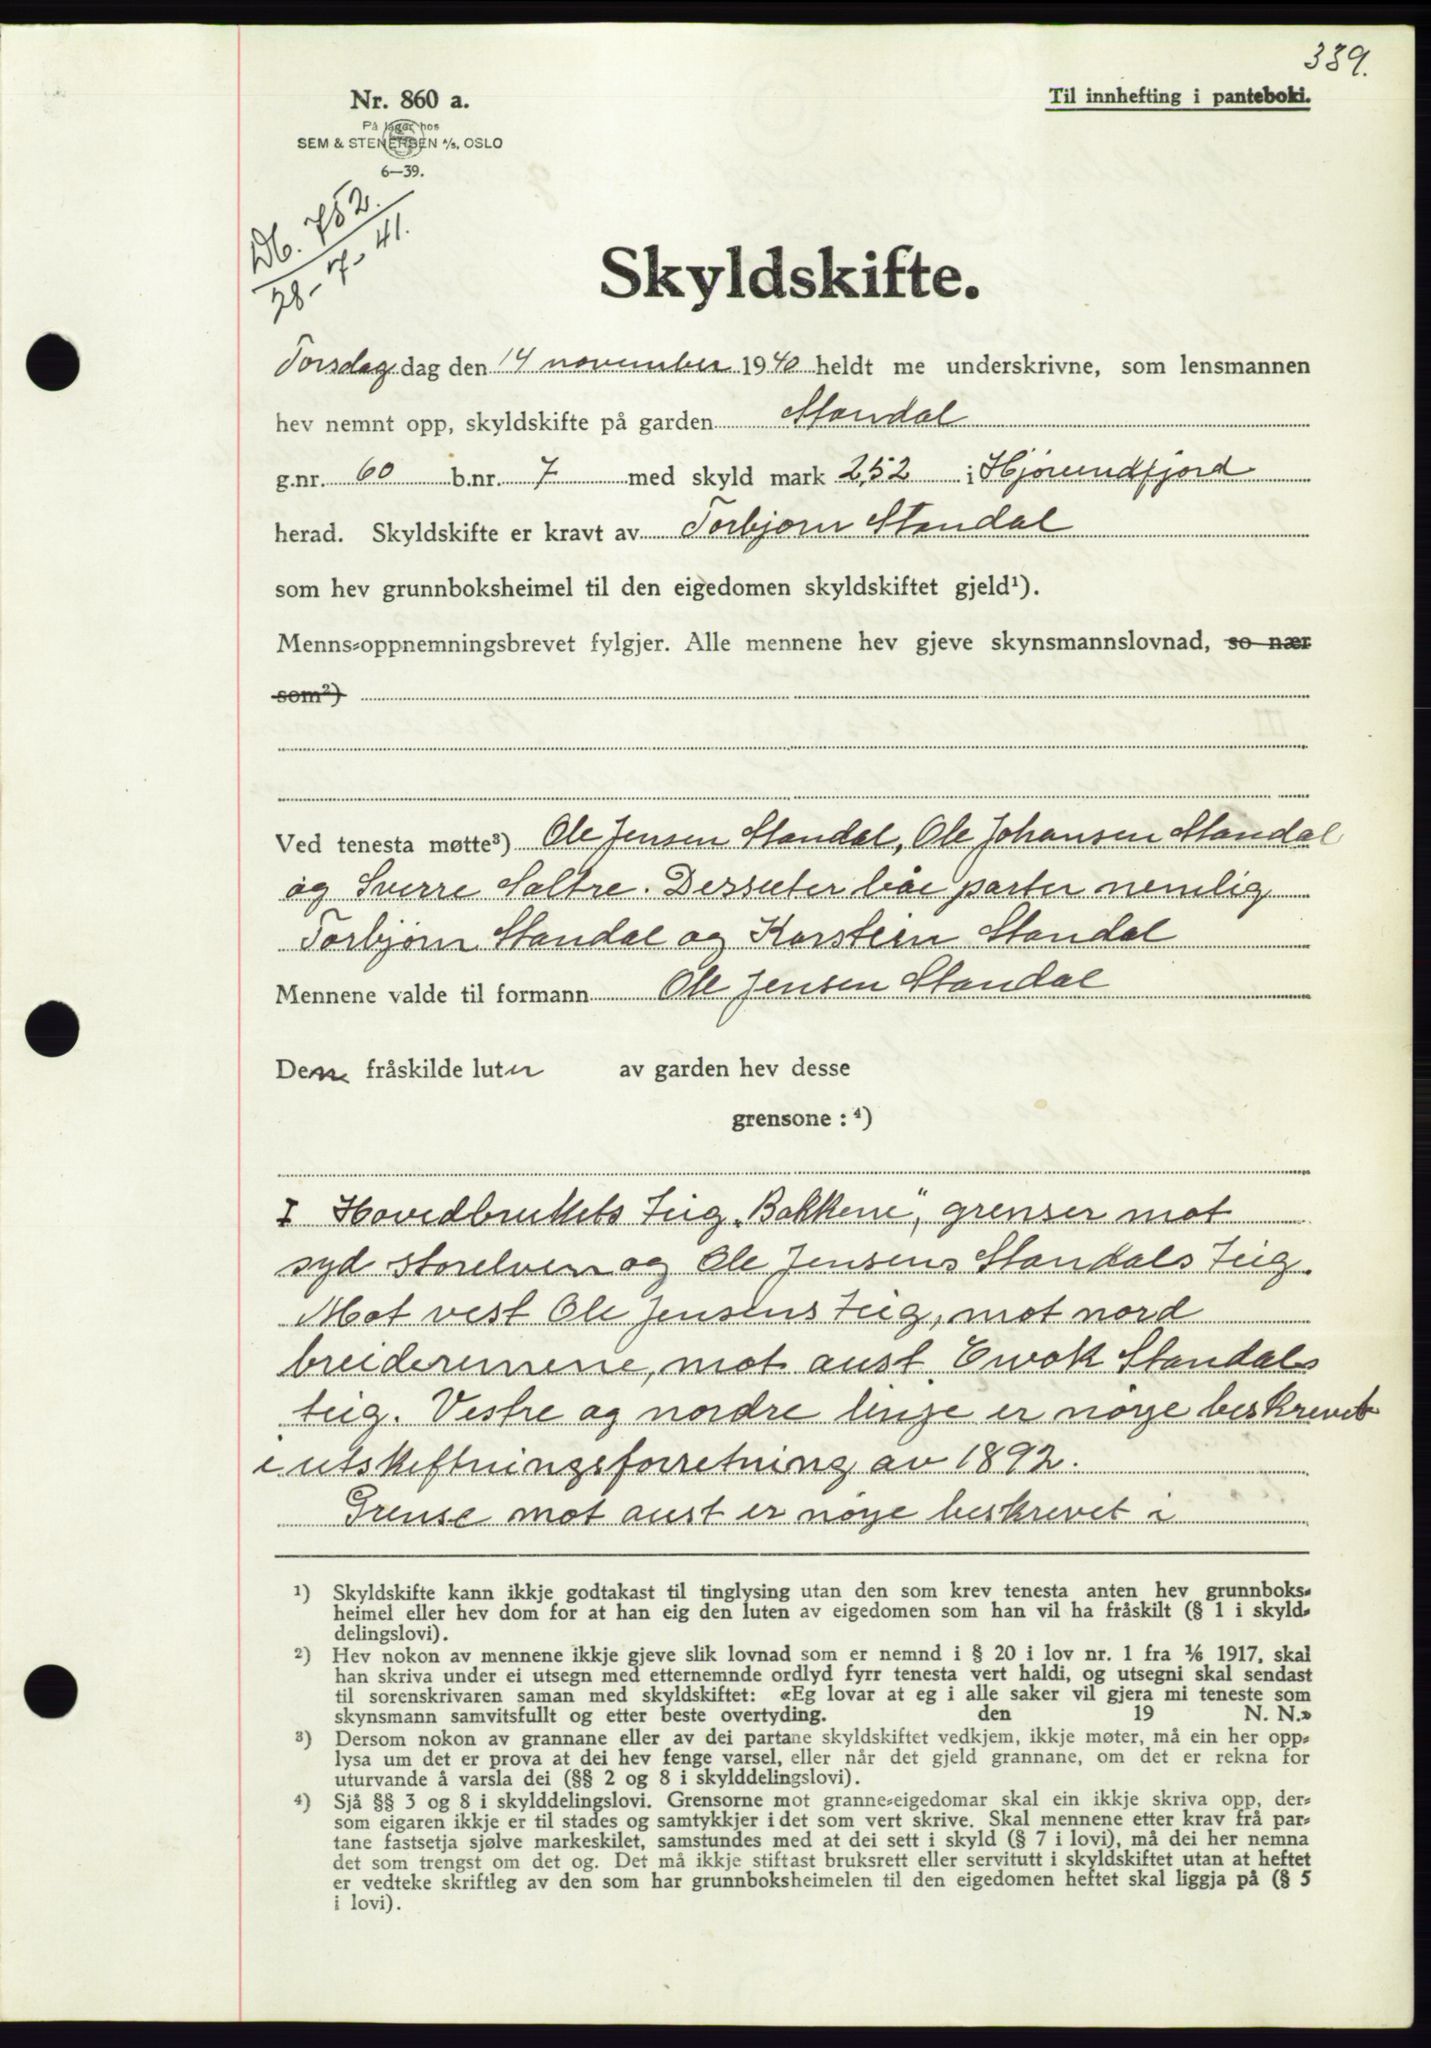 339.
Nr. 860 a.
Til innhefting i panteboki.
På lager hos
SEM & STENERSEN A/S, OSLO
6—39.
Db. 752.
28-7-41.
Skyldskifte.
Torsdag dag den 14 november 1940 heldt me underskrivne, som lensmannen
hev nemnt opp, skyldskifte på garden Standal
g.nr. 60 b.nr. 7 med skyld mark 2,52 i Hjørundfjord
herad. Skyldskifte er kravt av Torbjørn Standal
som hev grunnboksheimel til den eigedomen skyldskiftet gjeld¹).
Menns-oppnemningsbrevet fylgjer. Alle mennene hev gjeve skynsmannslovnad, so nær
som²)
Ved tenesta møtte³) Ole Jensen Standal, Ole Johansen Standal
og Sverre Saltre. Dessuter båe parter nemlig
Torbjørn Standal og Karstein Standal
Mennene valde til formann Ole Jensen Standal
Den fråskilde luten av garden hev desse
grensone : ⁴)
I Hovedbrukets teig „Bakkene", grenser mot
syd storelven og Ole Jensens Standals teig.
Mot vest Ole Jensens teig, mot nord
breideremene, mot aust Ewak Standals
teig. Vestre og nordre linje er nøye beskrevet
i utskeftningsforretning av 1892.
Grense mot aust er nøye beskrevet i
¹) Skyldskifte kann ikkje godtakast til tinglysing utan den som krev tenesta anten hev grunnboks-
heimel eller hev dom for at han eig den luten av eigedomen som han vil ha fråskilt (§ 1 i skyld-
delingslovi).
²) Hev nokon av mennene ikkje gjeve slik lovnad som er nemnd i § 20 i lov nr. 1 fra 1/6 1917, skal
han skriva under ei utsegn med etternemnde ordlyd fyrr tenesta vert haldi, og utsegni skal sendast
til sorenskrivaren saman med skyldskiftet: «Eg lovar at eg i alle saker vil gjera mi teneste som
skynsmann samvitsfullt og etter beste overtyding. den 19 N. N.»
³) Dersom nokon av grannane eller av dei partane skyldskiftet vedkjem, ikkje møter, må ein her opp-
lysa um det er prova at dei hev fenge varsel, eller når det gjeld grannane, om det er rekna for
uturvande å varsla dei (§§ 2 og 8 i skylddelingslovi).
⁴) Sjå §§ 3 og 8 i skylddelingslovi. Grensorne mot granne-eigedomar skal ein ikkje skriva opp, der-
som eigaren ikkje er til stades og samtykkjer i det som vert skrive. Skal mennene etter krav frå par-
tane fastsetja sjølve markeskilet, samstundes med at dei sett i skyld (§ 7 i lovi), må dei her nemna
det som trengst om det og. Det må ikkje stiftast bruksrett eller servitutt i skyldskiftet utan at heftet
er vedteke skriftleg av den som har grunnboksheimelen til den eigedomen heftet skal liggja på (§ 5
i lovi).